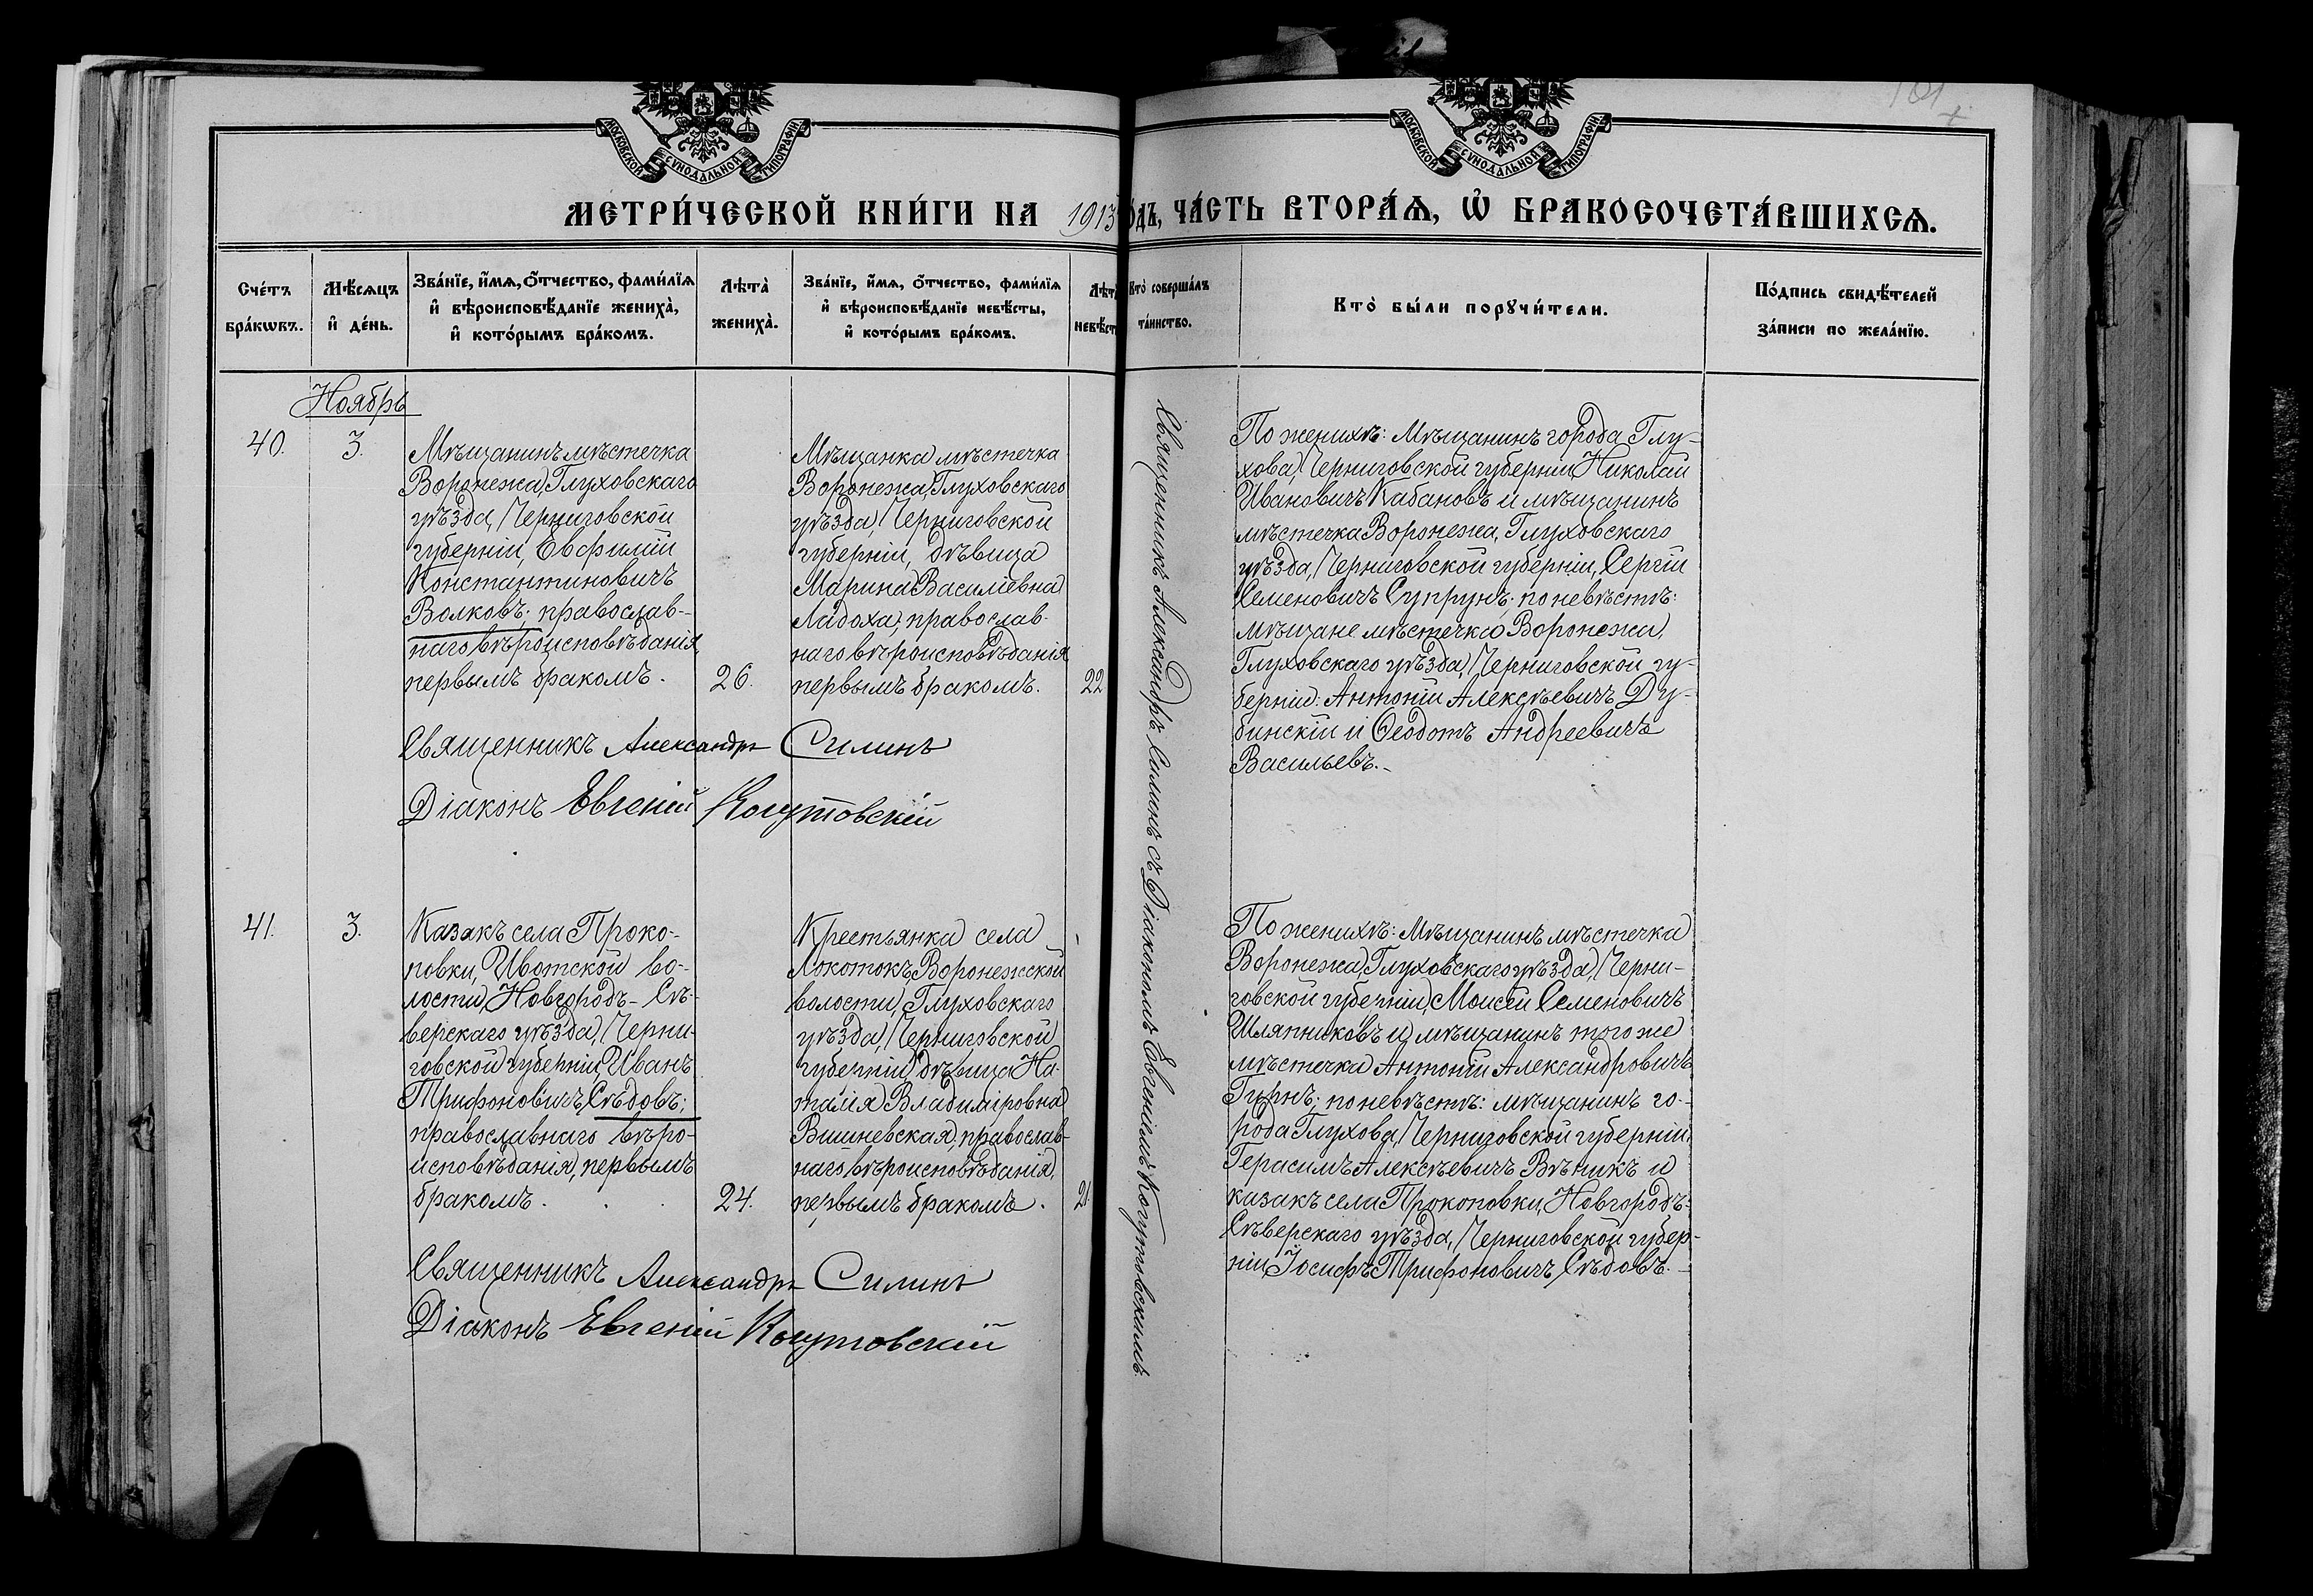 МОСКОВСКОЙ СѴНОДАЛЬНОЙ ТИПОГРАФІИ
МОСКОВСКОЙ СѴНОДАЛЬНОЙ ТИПОГРАФІИ
101
МЕТРИ́ЧЕСКОЙ КНИ́ГИ НА 1913 ГО́ДЪ, ЧА́СТЬ ВТОРА́Ѧ, Ѡ҆ БРАКОСОЧЕТА́ВШИХСѦ.
Сче́тъ
бра́кѡвъ.
Мѣ́сѧцъ
и҆ де́нь.
Зва́нїе, и҆́мѧ, ѻ҆́тчество, фами́лїѧ
и҆ вѣроисповѣ́данїе жениха̀,
и҆ кото́рымъ бра́комъ.
Лѣта̀
жениха̀.
Зва́нїе, и҆́мѧ, ѻ҆́тчество, фами́лїѧ
и҆ вѣроисповѣ́данїе невѣ́сты,
и҆ кото́рымъ бра́комъ.
Лѣта̀
невѣ́сты
Кто̀ соверша́лъ
та́инство.
Кто̀ бы́ли порꙋчи́тели.
По́дпись свидѣ́телей
за́писи по жела́нїю.
Ноябрь
40.
3.
Мѣщанинъ мѣстечка
Воронежа, Глуховскаго
уѣзда, Черниговской
губерніи, Евфимій
Константиновичъ
Волковъ; православ-
наго вѣроисповѣданія,
первымъ бракомъ.
26.
Мѣщанка мѣстечка
Воронежа, Глуховскаго
уѣзда, Черниговской
губерніи, дѣвица
Марина Василіевна
Ладоха; православ-
наго вѣроисповѣданія
первымъ бракомъ.
22
Священникъ Александръ Силинъ
Діаконъ Евгеній Когутовскій
Священникъ Александръ Силинъ съ Діакономъ Евгеніемъ Когутовскимъ.
По женихѣ: мѣщанинъ города Глу-
хова, Черниговской губерніи, Николай
Ивановичъ Кабановъ и мѣщанинъ
мѣстечка Воронежа, Глуховскаго
уѣзда, Черниговской губерніи, Сергій
Семеновичъ Супрунъ; по невѣстѣ:
мѣщане мѣстечка Воронежа,
Глуховскаго уѣзда, Черниговской гу-
берніи: Антоній Алексѣевичъ Ду-
бинскій и Ѳеодотъ Андреевичъ
Васильевъ.
41.
3.
Казакъ села Проко-
повки, Ивотской во-
лости, Новгородъ-Сѣ-
верскаго уѣзда, Черни-
говской губерніи, Иванъ
Трифоновичъ Сѣдовъ;
православнаго вѣро-
исповѣданія, первымъ
бракомъ.
24.
Крестьянка села
Локотокъ, Воронежской
волости, Глуховскаго
уѣзда, Черниговской
губерніи, дѣвица На-
талія Владиміровна
Вишневская; православ-
наго вѣроисповѣданія,
первымъ бракомъ.
21.
Священникъ Александръ Силинъ
Діаконъ Евгеній Когутовскій
По женихѣ: мѣщанинъ мѣстечка
Воронежа, Глуховскаго уѣзда, Черни-
говской губерніи, Моисей Семеновичъ
Шляпниковъ и мѣщанинъ того же
мѣстечка Антоній Александровичъ
Гиринъ; по невѣстѣ: мѣщанинъ го-
рода Глухова, Черниговской губерніи,
Герасимъ Алексѣевичъ Вѣникъ и
казакъ села Прокоповки, Новгородъ-
Сѣверскаго уѣзда, Черниговской губер-
ніи, Іосифъ Трифоновичъ Сѣдовъ.